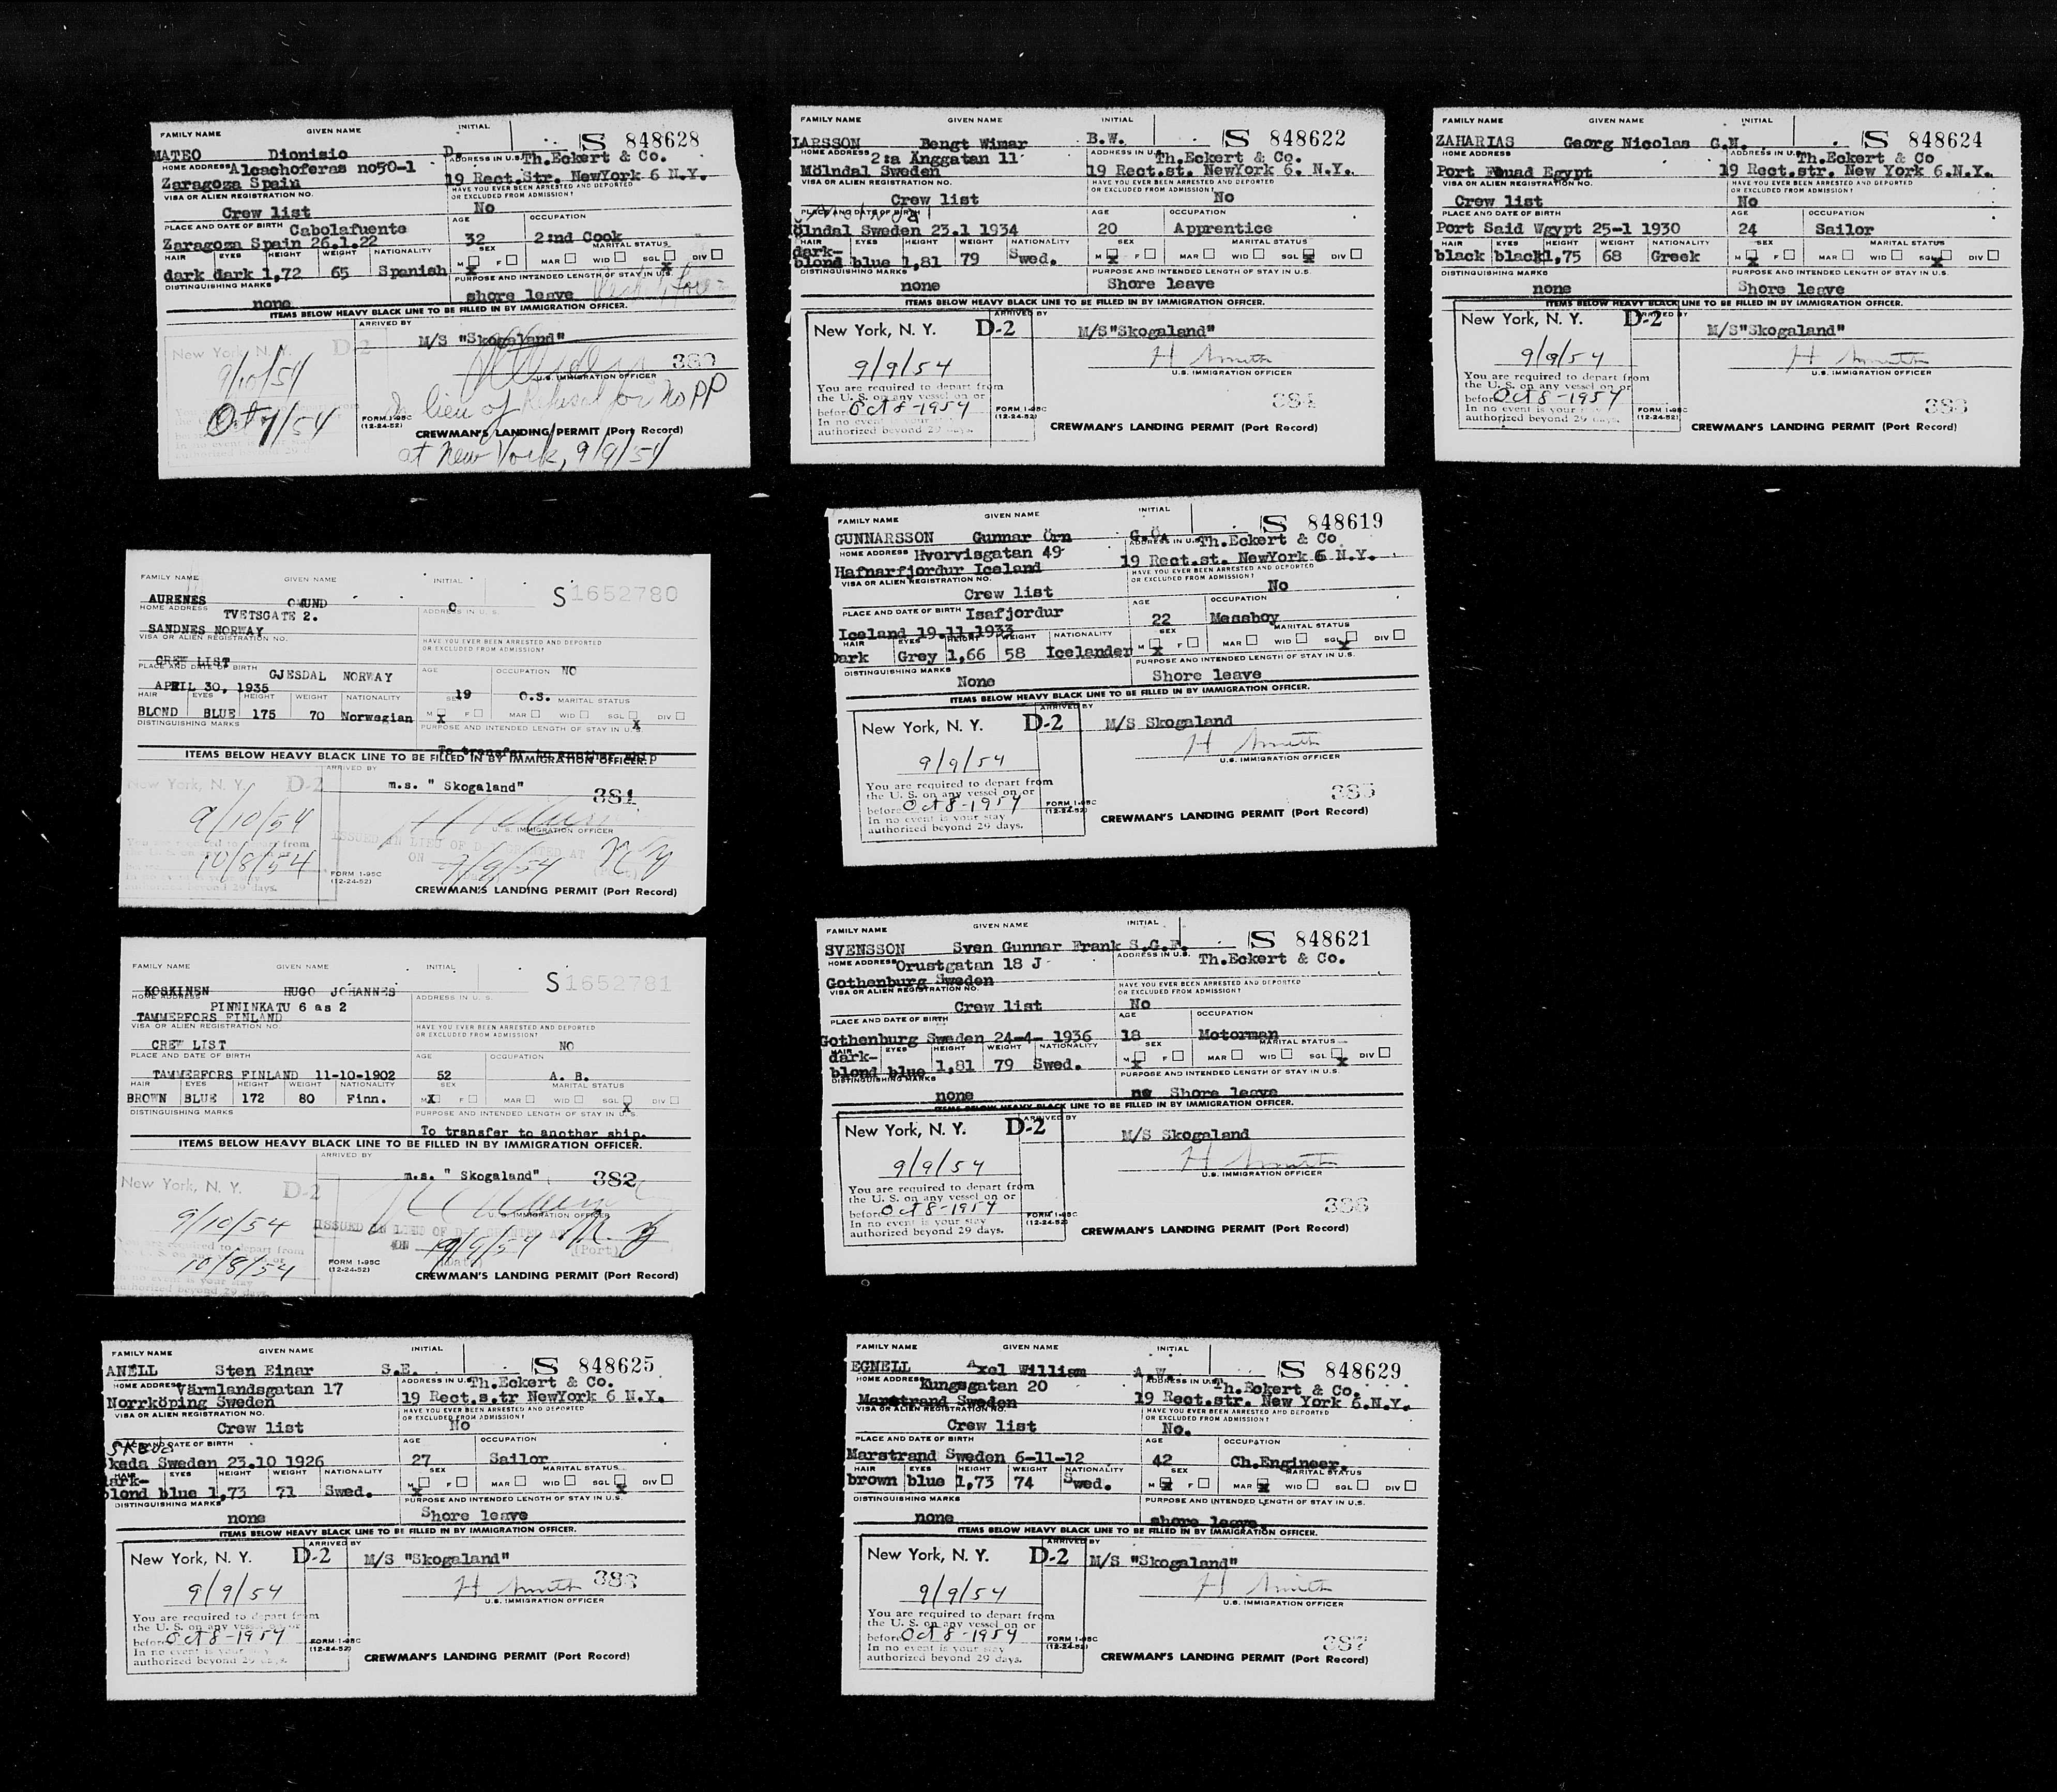 FAMILY NAME GIVEN NAME INITIAL
S 848628
MATEO Dionisio D.
HOME ADDRESS Alcachoferas no50-1
ADDRESS IN U.S. Th.Eckert & Co.
Zaragoza Spain
19 Rect.Str. NewYork 6 N.Y.
VISA OR ALIEN REGISTRATION NO.
HAVE YOU EVER BEEN ARRESTED AND DEPORTED
OR EXCLUDED FROM ADMISSION?
Crew list No
PLACE AND DATE OF BIRTH Cabolafuente
AGE OCCUPATION
Zaragoza Spain 26.1.22
32 2:nd Cook
HAIR EYES HEIGHT WEIGHT NATIONALITY
SEX MARITAL STATUS
M X F MAR WID SGL X DIV
dark dark 1,72 65 Spanish
PURPOSE AND INTENDED LENGTH OF STAY IN U.S.
DISTINGUISHING MARKS
none shore leave
ITEMS BELOW HEAVY BLACK LINE TO BE FILLED IN BY IMMIGRATION OFFICER.
ARRIVED BY
New York, N. Y. D-2
M/S "Skogaland"
380
9/10/54
U.S. IMMIGRATION OFFICER
In lieu of Refusal for no PP
Oct 7/54
FORM I-95C
(12-24-52)
CREWMAN'S LANDING PERMIT (Port Record)
at New York, 9/9/54
FAMILY NAME GIVEN NAME INITIAL
S 848622
LARSSON Bengt Wimar B.W.
HOME ADDRESS 2:a Änggatan 11
ADDRESS IN U.S. Th.Eckert & Co.
Mölndal Sweden
19 Rect.st. NewYork 6. N.Y.
VISA OR ALIEN REGISTRATION NO.
HAVE YOU EVER BEEN ARRESTED AND DEPORTED
OR EXCLUDED FROM ADMISSION?
Crew list No
PLACE AND DATE OF BIRTH
AGE OCCUPATION
ölndal Sweden 23.1 1934
20 Apprentice
HAIR EYES HEIGHT WEIGHT NATIONALITY
SEX MARITAL STATUS
M X F MAR WID SGL X DIV
dark-
blond blue 1,81 79 Swed.
DISTINGUISHING MARKS
PURPOSE AND INTENDED LENGTH OF STAY IN U.S.
none Shore leave
ITEMS BELOW HEAVY BLACK LINE TO BE FILLED IN BY IMMIGRATION OFFICER.
ARRIVED BY
New York, N. Y. D-2
M/S"Skogaland"
H Smith
9/9/54
U.S. IMMIGRATION OFFICER
You are required to depart from
the U. S. on any vessel on or
before Oct 8-1954
In no event is your stay
authorized beyond 29 days.
384
FORM I-95C
(12-24-52)
CREWMAN'S LANDING PERMIT (Port Record)
FAMILY NAME GIVEN NAME INITIAL
S 848624
ZAHARIAS Georg Nicolas G.N.
HOME ADDRESS
ADDRESS IN U.S. Th.Eckert & Co
Port Fouad Egypt
19 Rect.str. New York 6.N.Y.
VISA OR ALIEN REGISTRATION NO.
HAVE YOU EVER BEEN ARRESTED AND DEPORTED
OR EXCLUDED FROM ADMISSION?
Crew list No
PLACE AND DATE OF BIRTH
AGE OCCUPATION
Port Said Wgypt 25-1 1930
24 Sailor
HAIR EYES HEIGHT WEIGHT NATIONALITY
SEX MARITAL STATUS
M X F MAR WID SGL X DIV
black black1,75 68 Greek
DISTINGUISHING MARKS
PURPOSE AND INTENDED LENGTH OF STAY IN U.S.
none Shore leave
ITEMS BELOW HEAVY BLACK LINE TO BE FILLED IN BY IMMIGRATION OFFICER.
ARRIVED BY
New York, N. Y. D-2
M/S"Skogaland"
H Smith
9/9/54
U.S. IMMIGRATION OFFICER
You are required to depart from
the U. S. on any vessel on or
before Oct 8-1954
In no event is your stay
authorized beyond 29 days.
388
FORM I-95C
(12-24-52)
CREWMAN'S LANDING PERMIT (Port Record)
FAMILY NAME GIVEN NAME INITIAL
S 1652780
AURENES OMUND O
HOME ADDRESS TVETSGATE 2.
ADDRESS IN U. S.
SANDNES NORWAY
VISA OR ALIEN REGISTRATION NO.
HAVE YOU EVER BEEN ARRESTED AND DEPORTED
OR EXCLUDED FROM ADMISSION?
CREW LIST
PLACE AND DATE OF BIRTH GJESDAL NORWAY
AGE OCCUPATION NO
APRIL 30, 1935
19 O.S.
HAIR EYES HEIGHT WEIGHT NATIONALITY
SEX MARITAL STATUS
BLOND BLUE 175 70 Norwegian
M X F MAR WID SGL X DIV
DISTINGUISHING MARKS
PURPOSE AND INTENDED LENGTH OF STAY IN U.S.
To transfer to another ship
ITEMS BELOW HEAVY BLACK LINE TO BE FILLED IN BY IMMIGRATION OFFICER.
ARRIVED BY
New York, N. Y. D-2
m.s. " Skogaland"
381
9/10/54
U. S. IMMIGRATION OFFICER
ISSUED IN LIEU OF D-1 GRANTED AT NY
ON 9/9/54
10/8/54
authorized beyond 29 days.
FORM I-95C
(12-24-52)
CREWMAN'S LANDING PERMIT (Port Record)
FAMILY NAME GIVEN NAME INITIAL
S 848619
GUNNARSSON Gunnar Örn G.Ö.
HOME ADDRESS Hvervisgatan 49
ADDRESS IN U.S. Th.Eckert & Co
Hafnarfjordur Iceland
19 Rect.st. NewYork 6 N.Y.
VISA OR ALIEN REGISTRATION NO.
HAVE YOU EVER BEEN ARRESTED AND DEPORTED
OR EXCLUDED FROM ADMISSION?
Crew list No
PLACE AND DATE OF BIRTH Isafjordur
AGE OCCUPATION
Iceland 19.11.1933
22 Messboy
HAIR EYES HEIGHT WEIGHT NATIONALITY
SEX MARITAL STATUS
Dark Grey 1,66 58 Icelander
M X F MAR WID SGL X DIV
DISTINGUISHING MARKS
PURPOSE AND INTENDED LENGTH OF STAY IN U.S.
None Shore leave
ITEMS BELOW HEAVY BLACK LINE TO BE FILLED IN BY IMMIGRATION OFFICER.
ARRIVED BY
New York, N. Y. D-2
M/S Skogaland
H Smith
9/9/54
U.S. IMMIGRATION OFFICER
You are required to depart from
the U. S. on any vessel on or
before Oct 8-1954
In no event is your stay
authorized beyond 29 days.
385
FORM I-95C
(12-24-52)
CREWMAN'S LANDING PERMIT (Port Record)
FAMILY NAME GIVEN NAME INITIAL
S 1652781
KOSKINEN HUGO JOHANNES
HOME ADDRESS PINNINKATU 6 as 2
ADDRESS IN U. S.
TAMMERFORS FINLAND
VISA OR ALIEN REGISTRATION NO.
HAVE YOU EVER BEEN ARRESTED AND DEPORTED
OR EXCLUDED FROM ADMISSION?
CREW LIST NO
PLACE AND DATE OF BIRTH
AGE OCCUPATION
TAMMERFORS FINLAND 11-10-1902
52 A. B.
HAIR EYES HEIGHT WEIGHT NATIONALITY
SEX MARITAL STATUS
BROWN BLUE 172 80 Finn.
M X F MAR WID SGL X DIV
DISTINGUISHING MARKS
PURPOSE AND INTENDED LENGTH OF STAY IN U.S.
To transfer to another ship.
ITEMS BELOW HEAVY BLACK LINE TO BE FILLED IN BY IMMIGRATION OFFICER.
ARRIVED BY
New York, N. Y. D-2
m.s. " Skogaland"
382
9/10/54
U. S. IMMIGRATION OFFICER
ISSUED IN LIEU OF D-1 GRANTED AT N.Y
ON 9/9/54 (Port)
10/8/54
authorized beyond 29 days.
FORM I-95C
(12-24-52)
CREWMAN'S LANDING PERMIT (Port Record)
FAMILY NAME GIVEN NAME INITIAL
S 848621
SVENSSON Sven Gunnar Frank S.G.F.
HOME ADDRESS Orustgatan 18 J
ADDRESS IN U.S. Th.Eckert & Co.
Gothenburg Sweden
VISA OR ALIEN REGISTRATION NO.
HAVE YOU EVER BEEN ARRESTED AND DEPORTED
OR EXCLUDED FROM ADMISSION?
Crew list No
PLACE AND DATE OF BIRTH
AGE OCCUPATION
Gothenburg Sweden 24-4- 1936
18 Motorman
HAIR EYES HEIGHT WEIGHT NATIONALITY
SEX MARITAL STATUS
M X F MAR WID SGL X DIV
dark-
blond blue 1,81 79 Swed.
DISTINGUISHING MARKS
PURPOSE AND INTENDED LENGTH OF STAY IN U.S.
none Shore leave
ITEMS BELOW HEAVY BLACK LINE TO BE FILLED IN BY IMMIGRATION OFFICER.
ARRIVED BY
New York, N. Y. D-2
M/S Skogaland
H Smith
9/9/54
U.S. IMMIGRATION OFFICER
You are required to depart from
the U. S. on any vessel on or
before Oct 8-1954
In no event is your stay
authorized beyond 29 days.
386
FORM I-95C
(12-24-52)
CREWMAN'S LANDING PERMIT (Port Record)
FAMILY NAME GIVEN NAME INITIAL
S 848625
ANELL Sten Einar S.E.
HOME ADDRESS Värmlandsgatan 17
ADDRESS IN U.S. Th.Eckert & Co.
Norrköping Sweden
19 Rect.s.tr NewYork 6 N.Y.
VISA OR ALIEN REGISTRATION NO.
HAVE YOU EVER BEEN ARRESTED AND DEPORTED
OR EXCLUDED FROM ADMISSION?
Crew list No
PLACE AND DATE OF BIRTH
AGE OCCUPATION
keda Sweden 23.10 1926
27 Sailor
HAIR EYES HEIGHT WEIGHT NATIONALITY
SEX MARITAL STATUS
M X F MAR WID SGL X DIV
dark-
blond blue 1,73 71 Swed.
DISTINGUISHING MARKS
PURPOSE AND INTENDED LENGTH OF STAY IN U.S.
none Shore leave
ITEMS BELOW HEAVY BLACK LINE TO BE FILLED IN BY IMMIGRATION OFFICER.
ARRIVED BY
New York, N. Y. D-2
M/S "Skogaland"
H Smith 383
9/9/54
U.S. IMMIGRATION OFFICER
You are required to depart from
the U. S. on any vessel on or
before Oct 8-1954
In no event is your stay
authorized beyond 29 days.
FORM I-95C
(12-24-52)
CREWMAN'S LANDING PERMIT (Port Record)
FAMILY NAME GIVEN NAME INITIAL
S 848629
EGNELL Axel William A.W.
HOME ADDRESS Kungsgatan 20
ADDRESS IN U.S. Th.Eckert & Co.
Marstrand Sweden
19 Rect.str. New York 6.N.Y.
VISA OR ALIEN REGISTRATION NO.
HAVE YOU EVER BEEN ARRESTED AND DEPORTED
OR EXCLUDED FROM ADMISSION?
Crew list No.
PLACE AND DATE OF BIRTH
AGE OCCUPATION
Marstrand Sweden 6-11-12
42 Ch.Engineer.
HAIR EYES HEIGHT WEIGHT NATIONALITY
SEX MARITAL STATUS
brown blue 1,73 74 Swed.
M X F MAR X WID SGL DIV
DISTINGUISHING MARKS
PURPOSE AND INTENDED LENGTH OF STAY IN U.S.
none shore leave.
ITEMS BELOW HEAVY BLACK LINE TO BE FILLED IN BY IMMIGRATION OFFICER.
ARRIVED BY
New York, N. Y. D-2
M/S "Skogaland"
H Smith
9/9/54
U.S. IMMIGRATION OFFICER
You are required to depart from
the U. S. on any vessel on or
before Oct 8-1954
In no event is your stay
authorized beyond 29 days.
387
FORM I-95C
(12-24-52)
CREWMAN'S LANDING PERMIT (Port Record)